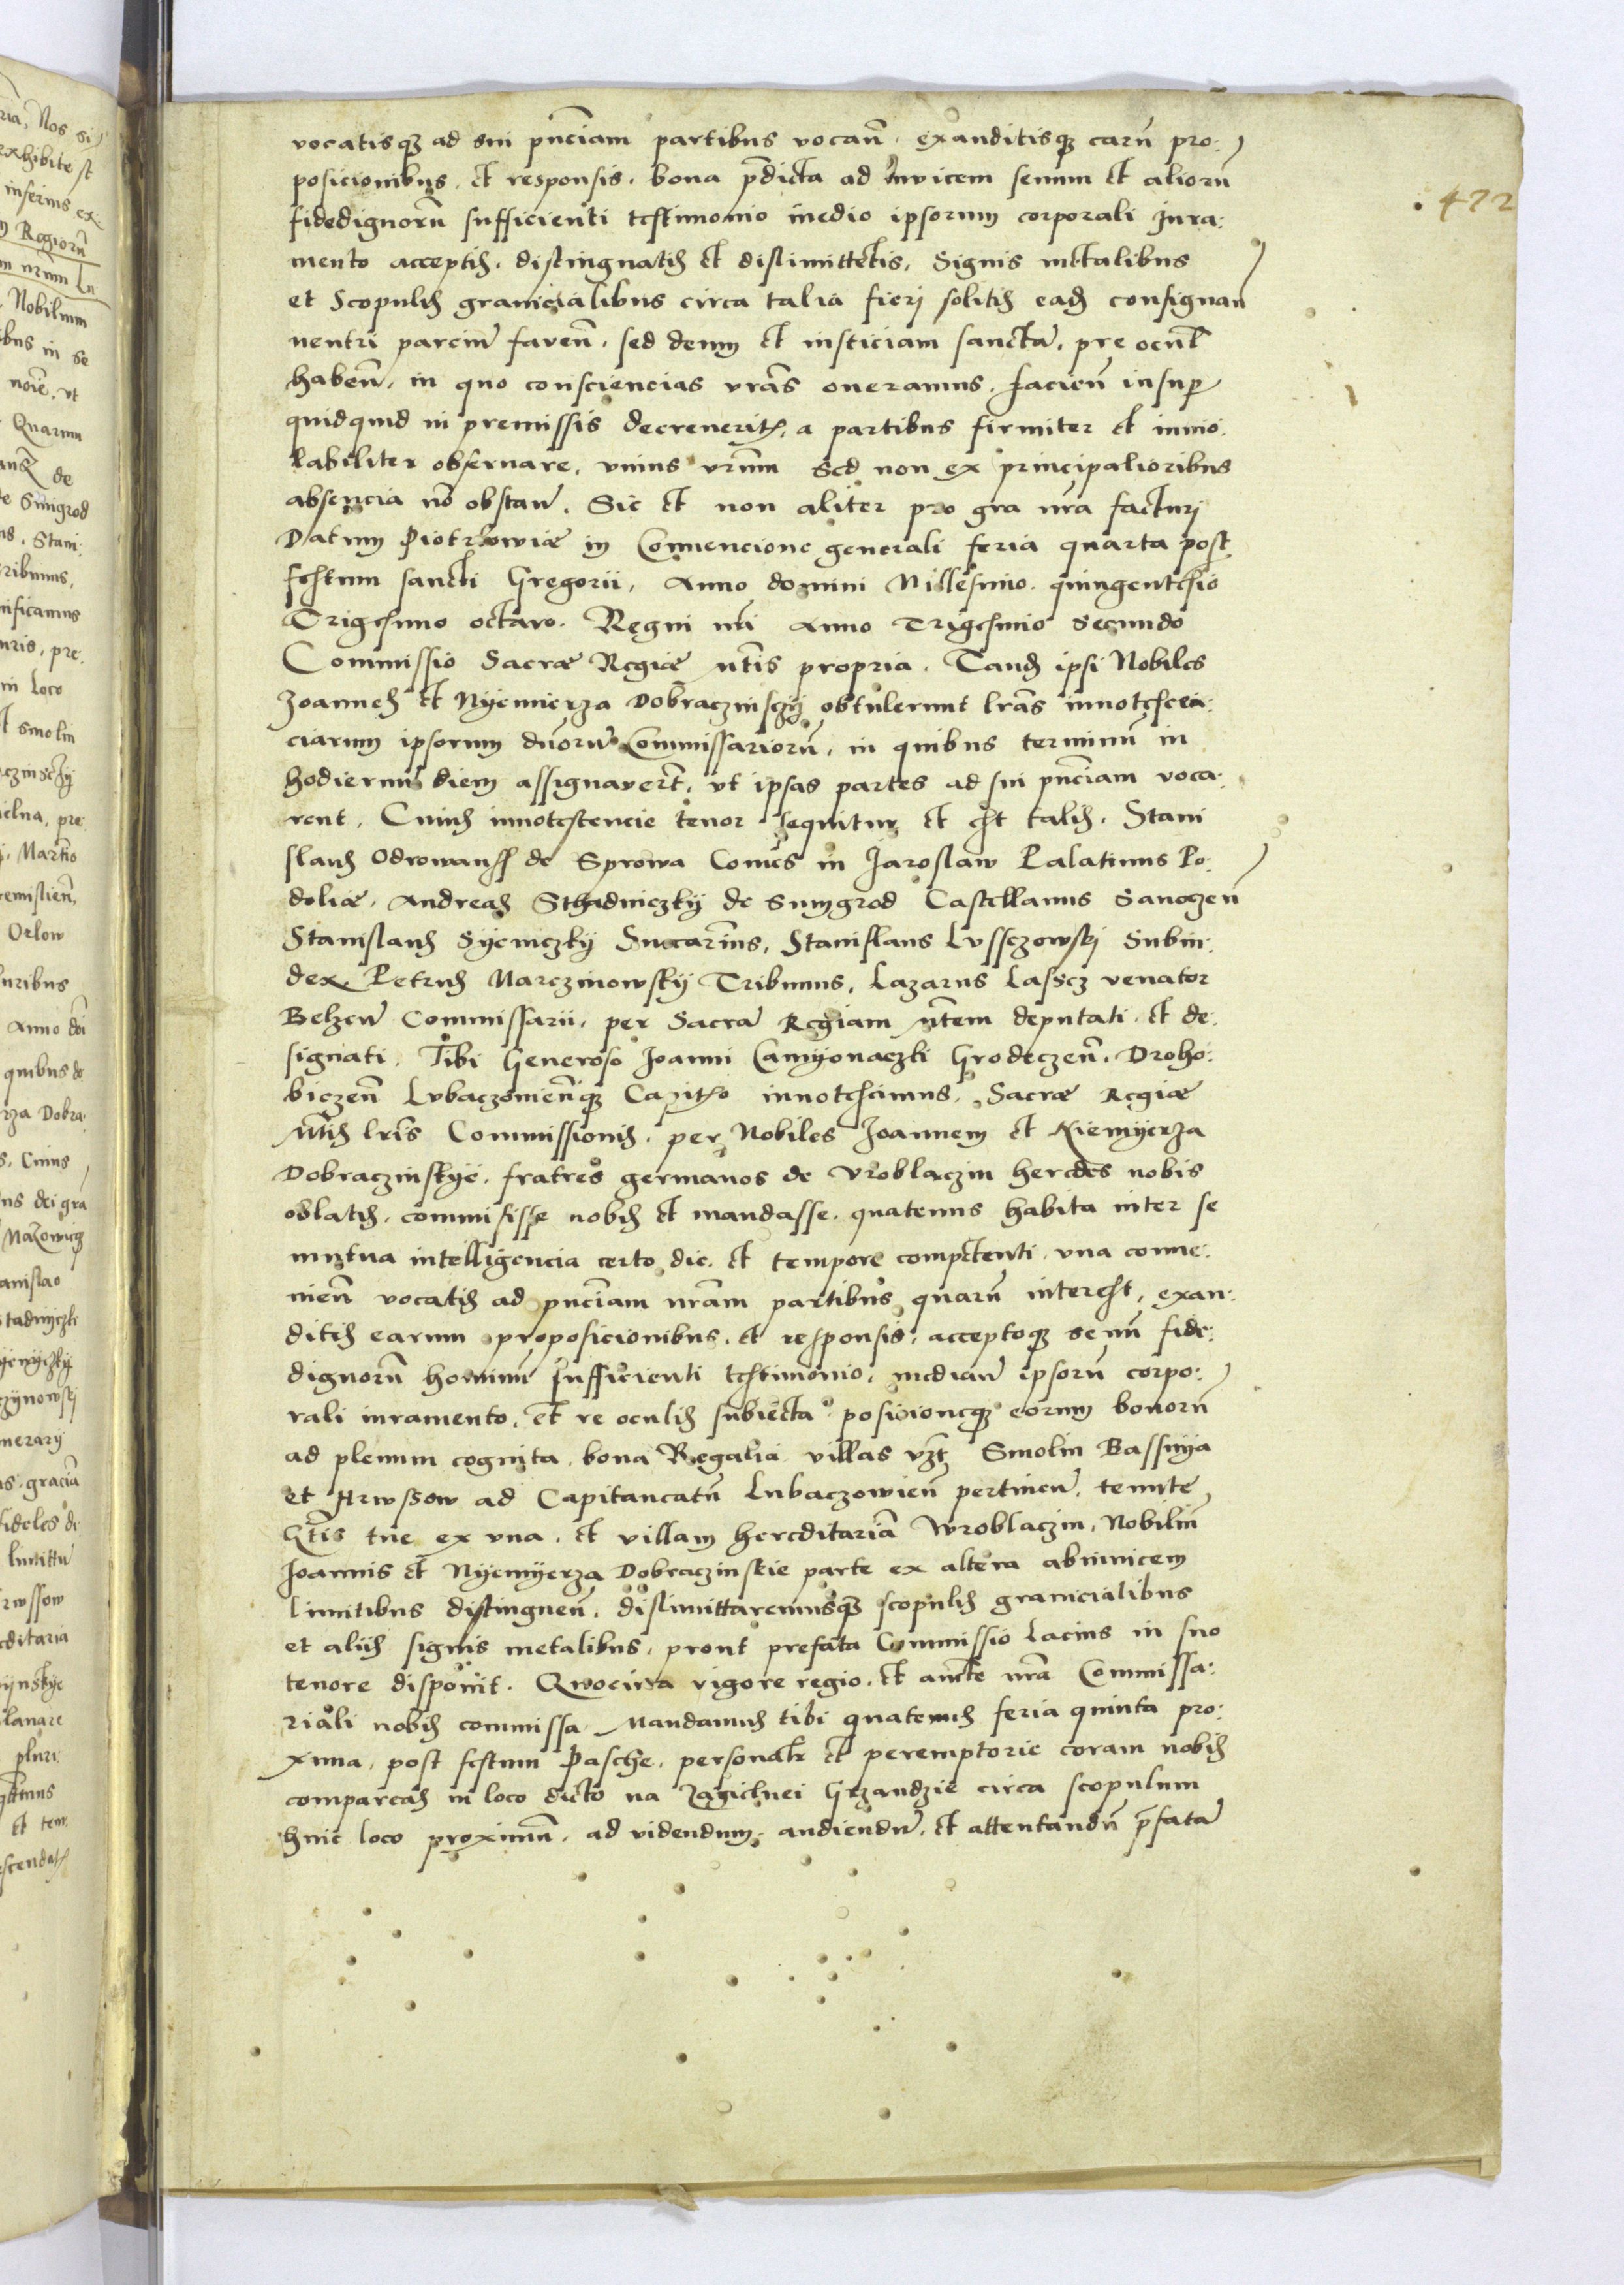 472
vocatisqꝫ ad sui pn̄ciam partibus vocan̄. exauditisqꝫ earū pro:
posicionibus. et responsis. bona p̄dicta ad Invicem senum et aliorū
fidedignorū sufficienti testimonio medio ipsorum corporali Jura:
mento acceptis. distinguatis et dislimittetis, Signis metalibus
et Scopulis granicialibus circa talia fieri solitis eadē consignan̄
neutri parcium faven̄. sed deum et iusticiam sanctā. pre oculis
haben̄. in quo consciencias vr̄as oneramus. facien̄ insuper
quidquid in premissis decreveritis, a partibus firmiter et invio:
labiliter observare. vnius vr̄um sed non ex principalioribus
absencia nō obstan̄. Sic et non aliter pro gra nr̄a facturi
Datum Piotrkowiæ in Conuencione generali feria quarta post
festum sancti Gregorii, Anno domini Millesimo. quingentesimo
Trigesimo octavo. Regni nr̄i Anno Trigesimo secundo
Commissio Sacræ Regiæ Mtis propria. Tandē ipsi Nobiles
Joannes et Nyemierza Dobraczinsczÿ obtulerunt lrās innotescen:
ciarum ipsorum dn̄orū Commissariorū, in quibus terminū in
hodiernū diem assignaverūt, vt ipsas partes ad sui pn̄ciam voca:
rent, Cuius innotescencie tenor sequitur et est talis. Stani
slaus Odrowansz de Sprowa Comes in Jaroslaw Palatinus Po:
doliæ. Andreas Sthadniczkÿ de Smygrod Castellanus Sanoczen̄
Stanislaus Syeniczkÿ Succam̄s, Stanislaus Lvssczowskj Subiu:
dex. Petrus Marczinowskÿ Tribunus, Lazarus Lassez venator
Belzen̄ Commissarii, per Sacrā Regiam Mtem deputati et de:
signati. Tibi Generoso Joanni Camÿonaczki Grodeczen̄. Droho:
biczen̄ Lvbaczouien̄qꝫ Capitō innotescimus. Sacræ Regiæ
Mtis lrīs Commissionis. per Nobiles Joannem et Niemÿerza
Dobraczinskÿe. fratres germanos de Vroblaczin heredes nobis
oblatis. commisisse nobis et mandasse. quatenus habita inter se
mutua intelligencia certo die. et tempore competenti vna conue:
nien̄ vocatis ad pn̄ciam nr̄am partibus quarū interest, exau:
ditis earum proposicionibus. et responsis, acceptoqꝫ senū fide:
dignorū hominū sufficienti testimonio, median̄ ipsorū corpo:
rali iuramento, et re oculis subiecta posicioneqꝫ eorum bonorū
ad plenum cognita. bona Regalia villas vzt Smolin Bassnÿa
et Hrwssow ad Capitaneatū Lubaczowien̄ pertinen̄. tenute
Gtis tue ex vna. et villam hereditariā Wroblaczin, Nobiliū
Joannis et Nÿemÿerza Dobraczinskie parte ex altera abinuicem
limitibus distinguen̄. dislimittaremusqꝫ scopulis granicialibus
et aliis signis metalibus. prout prefata Commissio Lacius in suo
tenore disponit. Quocirca vigore regio. et aucte nrā Commissa:
riali nobis commissa. Mandamus tibi quatenus feria quinta pro:
xima, post festum Pasche, personalr et peremptorie coram nobis
compareas in loco dicto na Zagielnei Grzandzie circa scopulum
huic loco proximū. ad videndum. audiendū. et attentandū p̄fatā